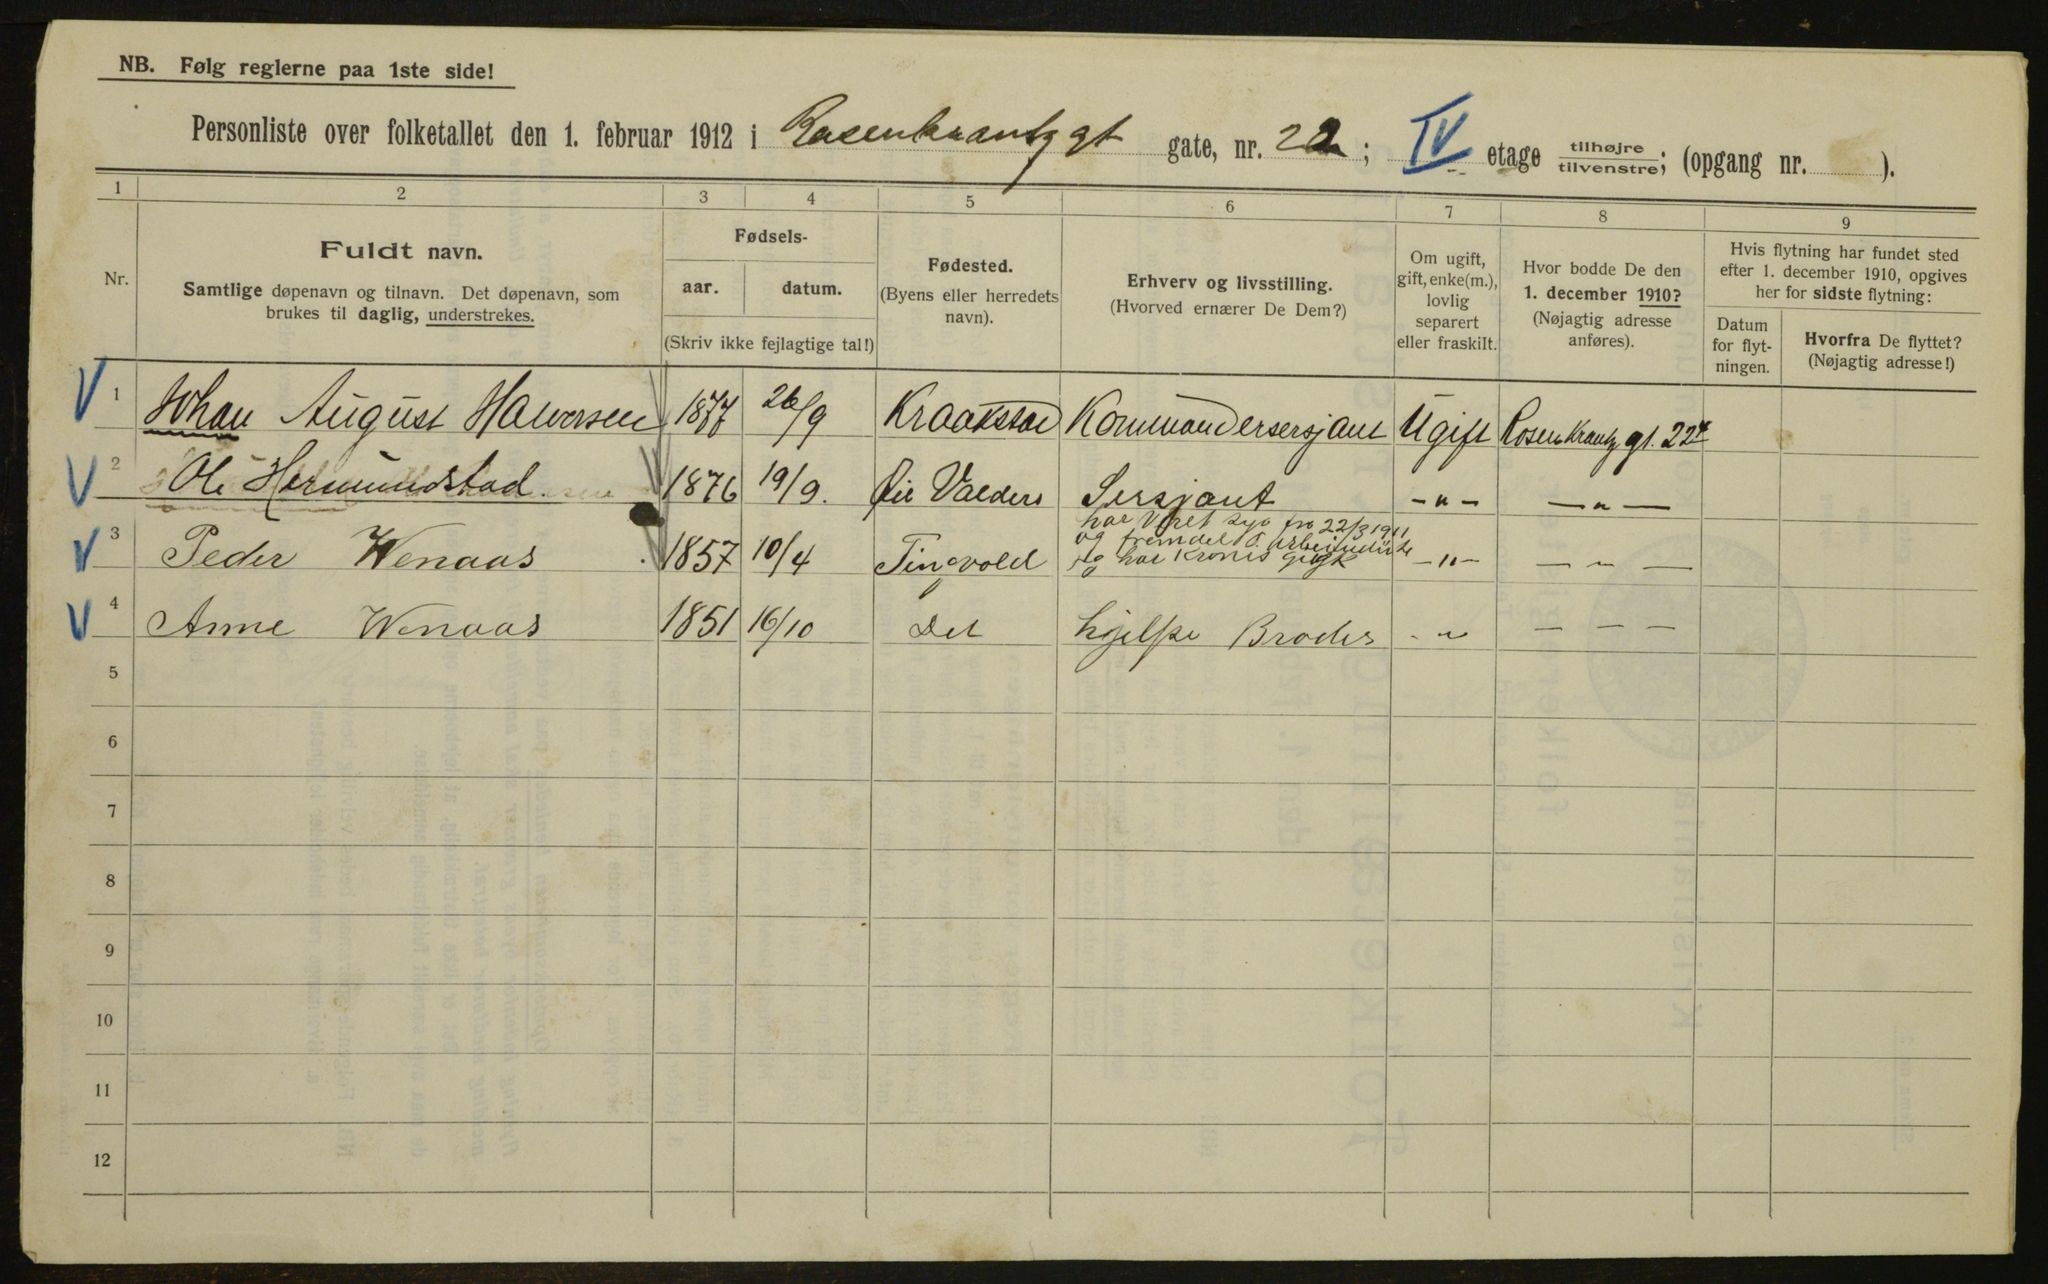 NB. Følg reglerne paa 1ste side!
Personliste over folketallet den 1. februar 1912 i Rosenkrantzgt gate, nr. 22; IV etage tilhøjre/tilvenstre; (opgang nr. ).
1 2 3 4 5 6 7 8 9
Nr.
Fuldt navn.
Samtlige døpenavn og tilnavn. Det døpenavn, som
brukes til daglig, understrekes.
Fødsels-
aar. datum.
(Skriv ikke fejlagtige tal!)
Fødested.
(Byens eller herredets
navn).
Erhverv og livsstilling.
(Hvorved ernærer De Dem?)
Om ugift,
gift, enke(m.),
lovlig
separert
eller fraskilt.
Hvor bodde De den
1. december 1910?
(Nøjagtig adresse
anføres).
Hvis flytning har fundet sted
efter 1. december 1910, opgives
her for sidste flytning:
Datum
for flyt-
ningen.
Hvorfra De flyttet?
(Nøjagtig adresse!)
1 Johan August Halvorsen 1877 26/9 Kraakstad Kommandersersjant Ugift Rosenkrantz gt. 22
2 Ole Hermundstad 1876 19/9. Valders Sersjant -"- -"-
3 Peder Wenaas 1857 10/4 Tingvold har Været syg fra 22/3 1911
og fremdeles
og har Kronis -"- -"-
4 Anne Wenaas 1851 16/10 Det hjelpe Broder -"- - - -
5
6
7
8
9
10
11
12